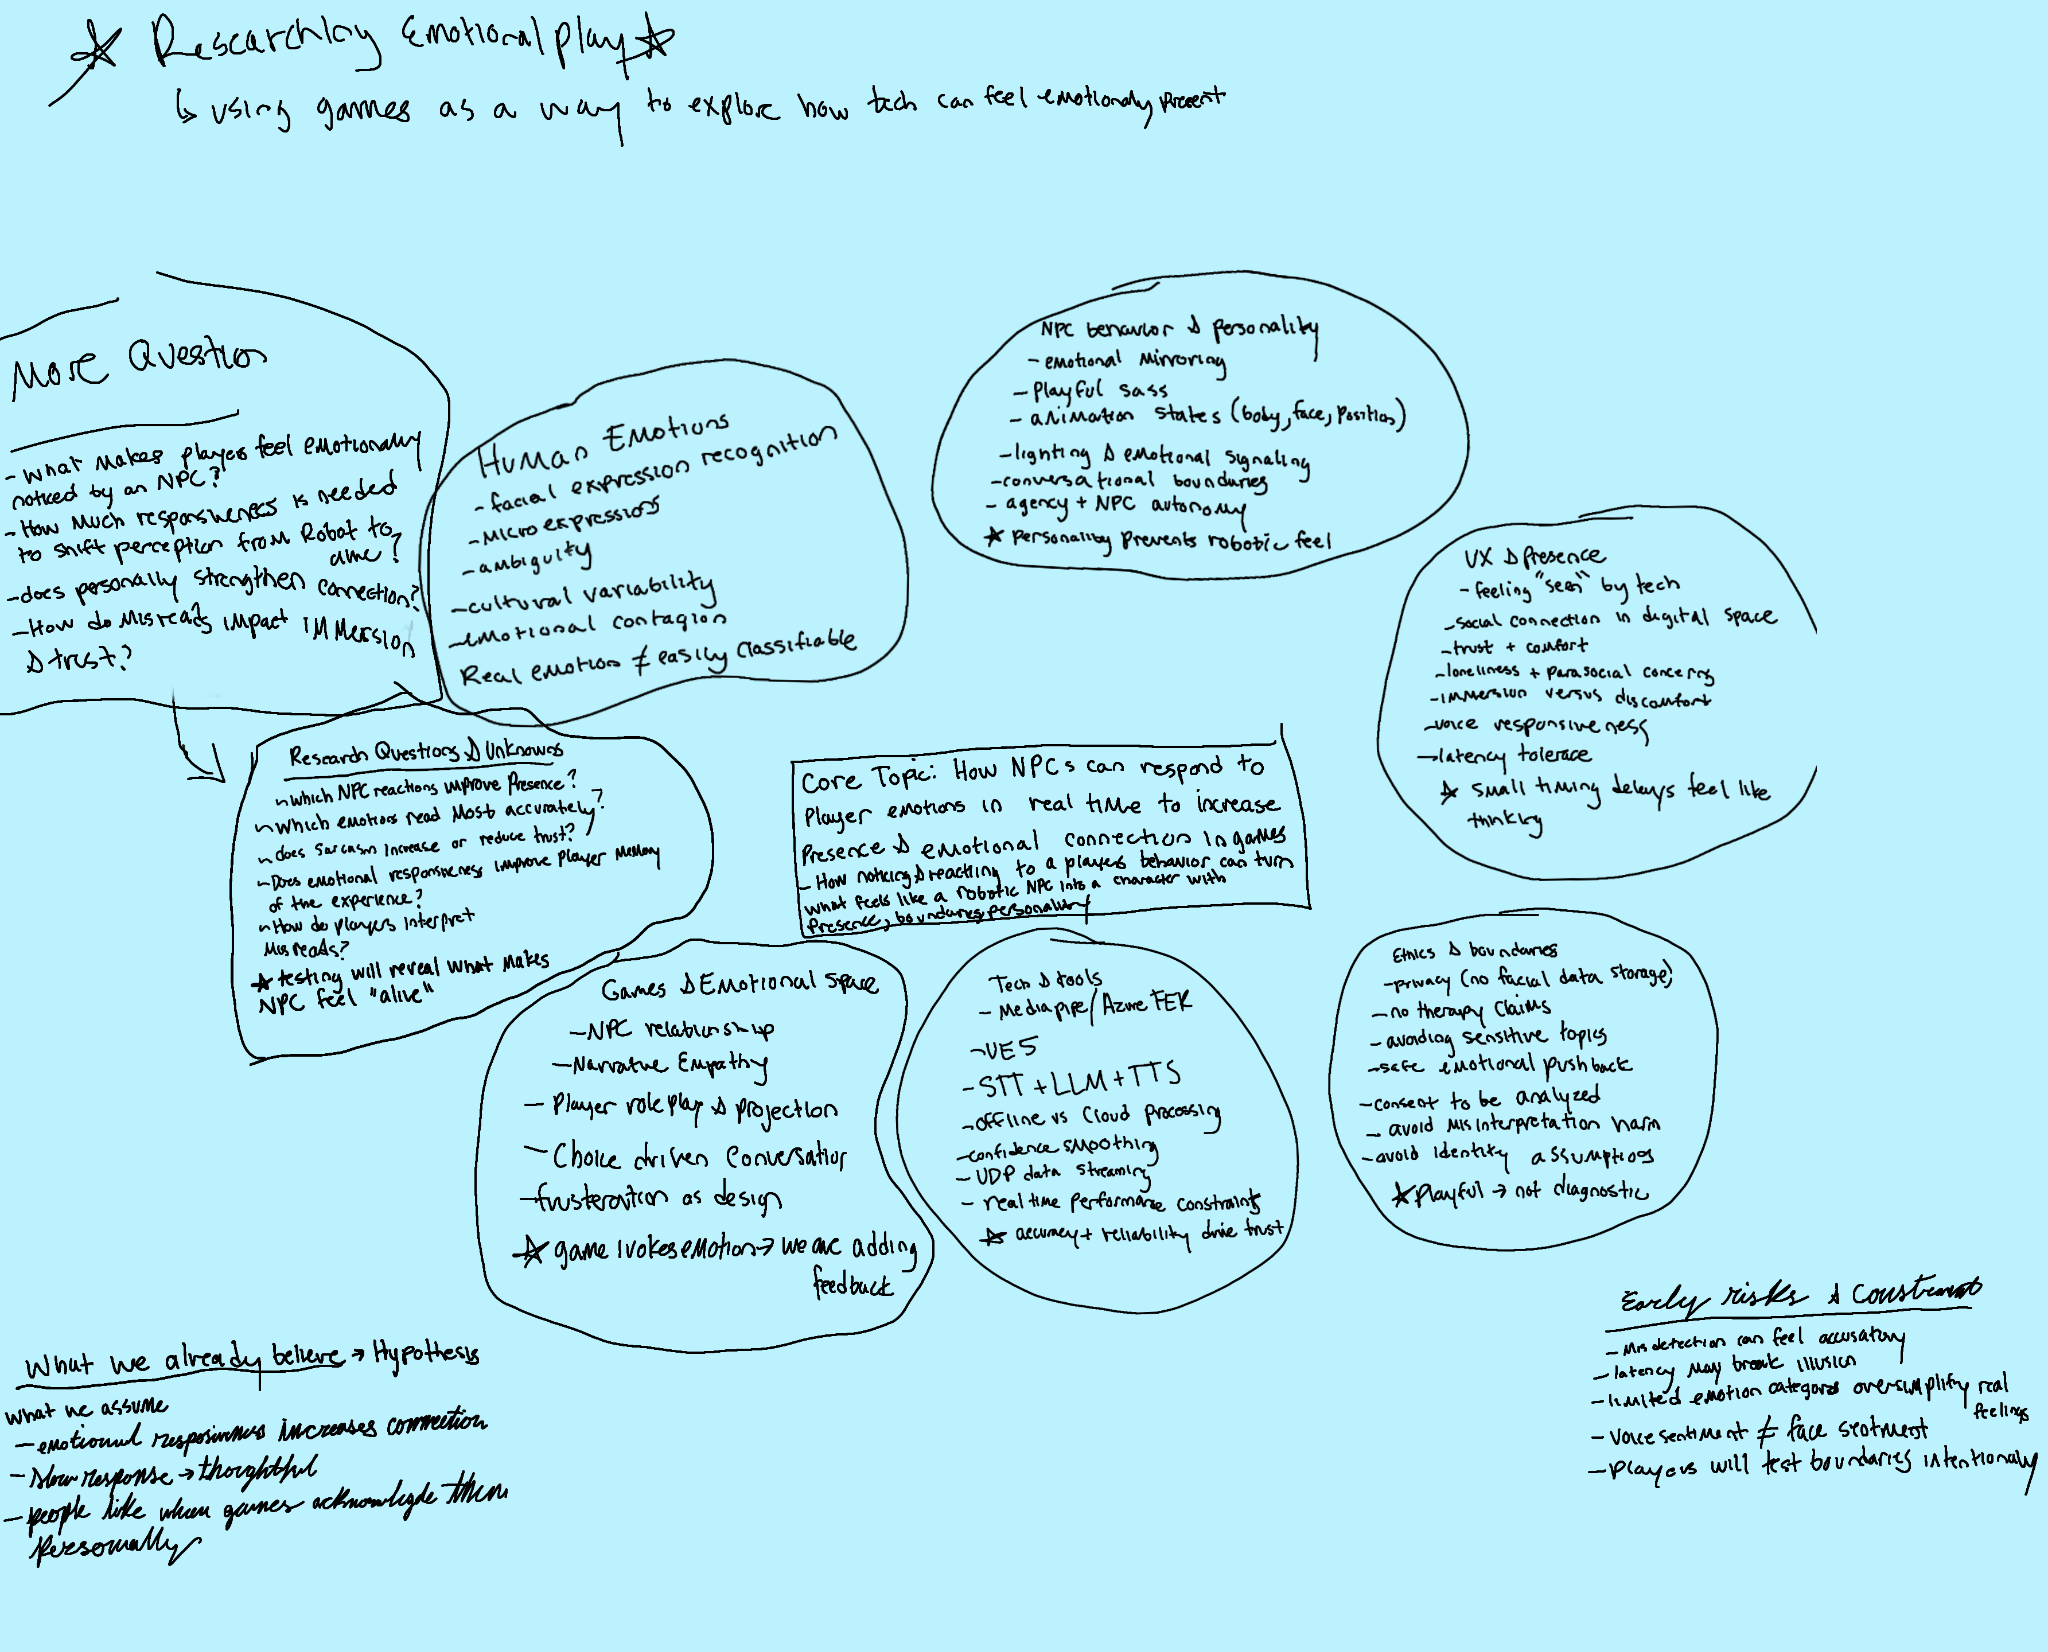 Researching Emotional play
↳ using games as a way to explore how tech can feel emotionaly present
More Question
- What makes players feel emotionally
noticed by an NPC?
- How much responsiveness is needed
to shift perception from Robot to
alive?
- does personally strengthen connection?
- How do misreads impact immersion
& trust?
Human Emotions
- facial expression recognition
- micro expressions
- ambiguity
- cultural variability
- emotional contagion
Real emotion ≠ easily classifiable
NPC behavior & personality
- emotional mirroring
- Playful sass
- animation states (body, face, position)
- lighting & emotional signaling
- conversational boundaries
- agency + NPC autonomy
☆ personality prevents robotic feel
UX & presence
- feeling "seen" by tech
- social connection in digital space
- trust + comfort
- loneliness + parasocial concerns
- immersion versus discomfort
- voice responsiveness
- latency tolerace
☆ small timing delays feel like
thinking
Research Questions & Unknowns
~ which NPC reactions improve Presence?
~ which emotions read most accurately?
~ does sarcasm increase or reduce trust?
~ Does emotional responsiveness improve player memory
of the experience?
~ How do players interpret
misreads?
☆ testing will reveal what makes
NPC feel "alive"
Core Topic: How NPCs can respond to
Player emotions in real time to increase
Presence & emotional connection in games
- How noticing & reacting to a players behavior can turn
what feels like a robotic NPC into a character with
presence, boundaries, personality
Games & Emotional space
- NPC relationship
- Narrative Empathy
- Player role play & projection
- Choice driven conversation
- frusteration as design
☆ game ivokes emotion → we are adding
feedback
Tech & tools
- Mediapipe / Azure FER
- UE5
- STT + LLM + TTS
- offline vs cloud processing
- confidence smoothing
- UDP data streaming
- real time performance constraints
☆ accuracy + reliability drive trust
Ethics & boundaries
- privacy (no facial data storage)
- no therapy claims
- avoiding sensitive topics
- safe emotional pushback
- consent to be analyzed
- avoid misinterpretation harm
- avoid identity assumptions
☆ playful → not diagnostic
What we already believe → Hypothesis
What we assume
- emotional responsivness increases connection
- slow response → thoughtful
- people like when games acknowledge them
personally
Early risks & constraints
- Misdetection can feel accusatory
- latency may break illusion
- limited emotion categories oversimplify real
feelings
- Voice sentiment ≠ face sentiment
- Players will test boundaries intentionaly